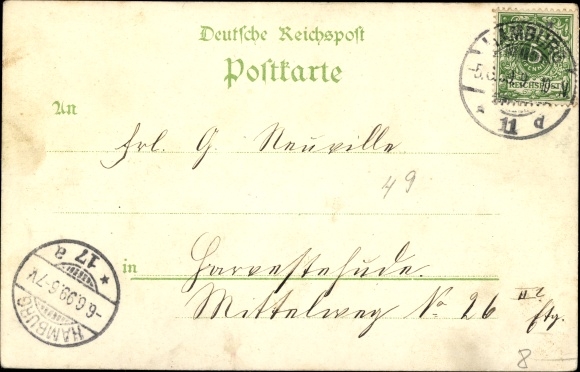 Deutsche Reichspost
Postkarte
An
Frl. G. Neuville
49
in Harvestehude.
Mittelweg No 26 III Etg.
8
HAMBURG
11 d
REICHSPOST
HAMBURG
-6.6.99.6-7V.
* 17 a